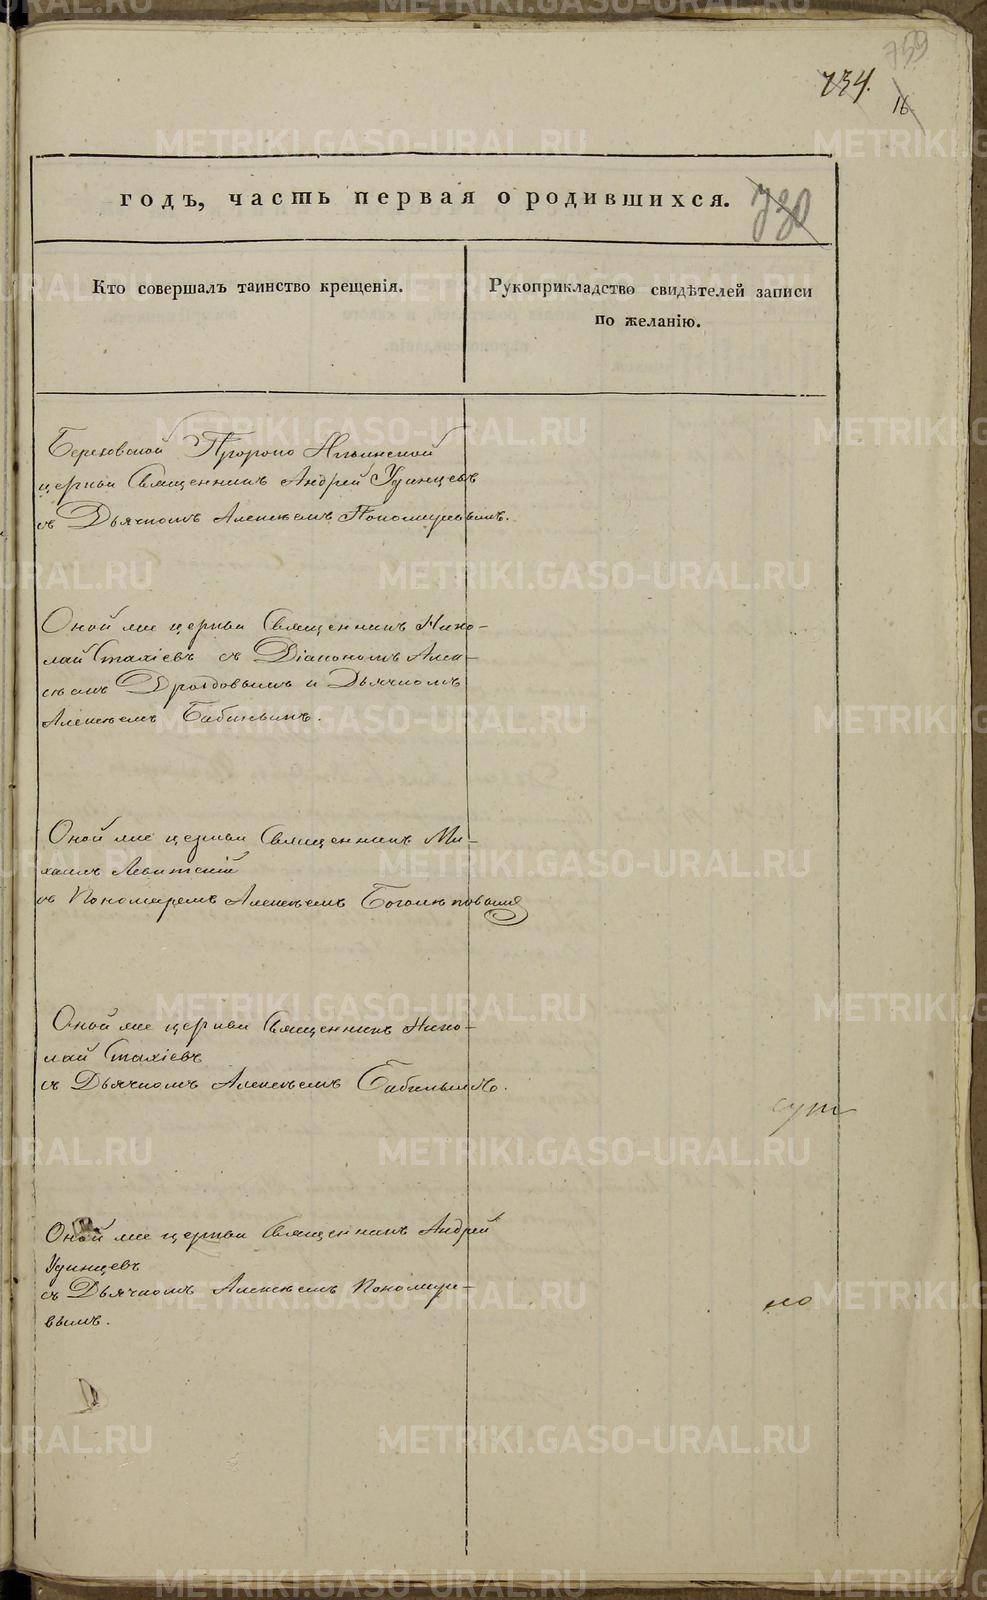 759
734.
16
годъ, часть первая о родившихся.
730
Кто совершалъ таинство крещенія.
Рукоприкладство свидѣтелей записи
по желанію.
Пророко Ильинской
церкви Священникъ Андрей Удинцевъ
съ Дьячкомъ Алексѣемъ Пономаревымъ.
Оной же церкви Священникъ Нико-
лай Стахіевъ съ Діакономъ Алек-
сѣемъ Дроздовымъ и Дьячкомъ
Алексѣемъ Бабинымъ.
Оной же церкви Священникъ Ми-
хаилъ Левитскій
съ Пономаремъ Алексѣемъ
Оной же церкви Священникъ Нико-
лай Стахіевъ
съ Дьячкомъ Алексѣемъ Бабинымъ.
Оной же церкви Священникъ Андрей
Удинцевъ
съ Дьячкомъ Алексѣемъ Пономаре-
вымъ.
METRIKI.GASO-URAL.RU